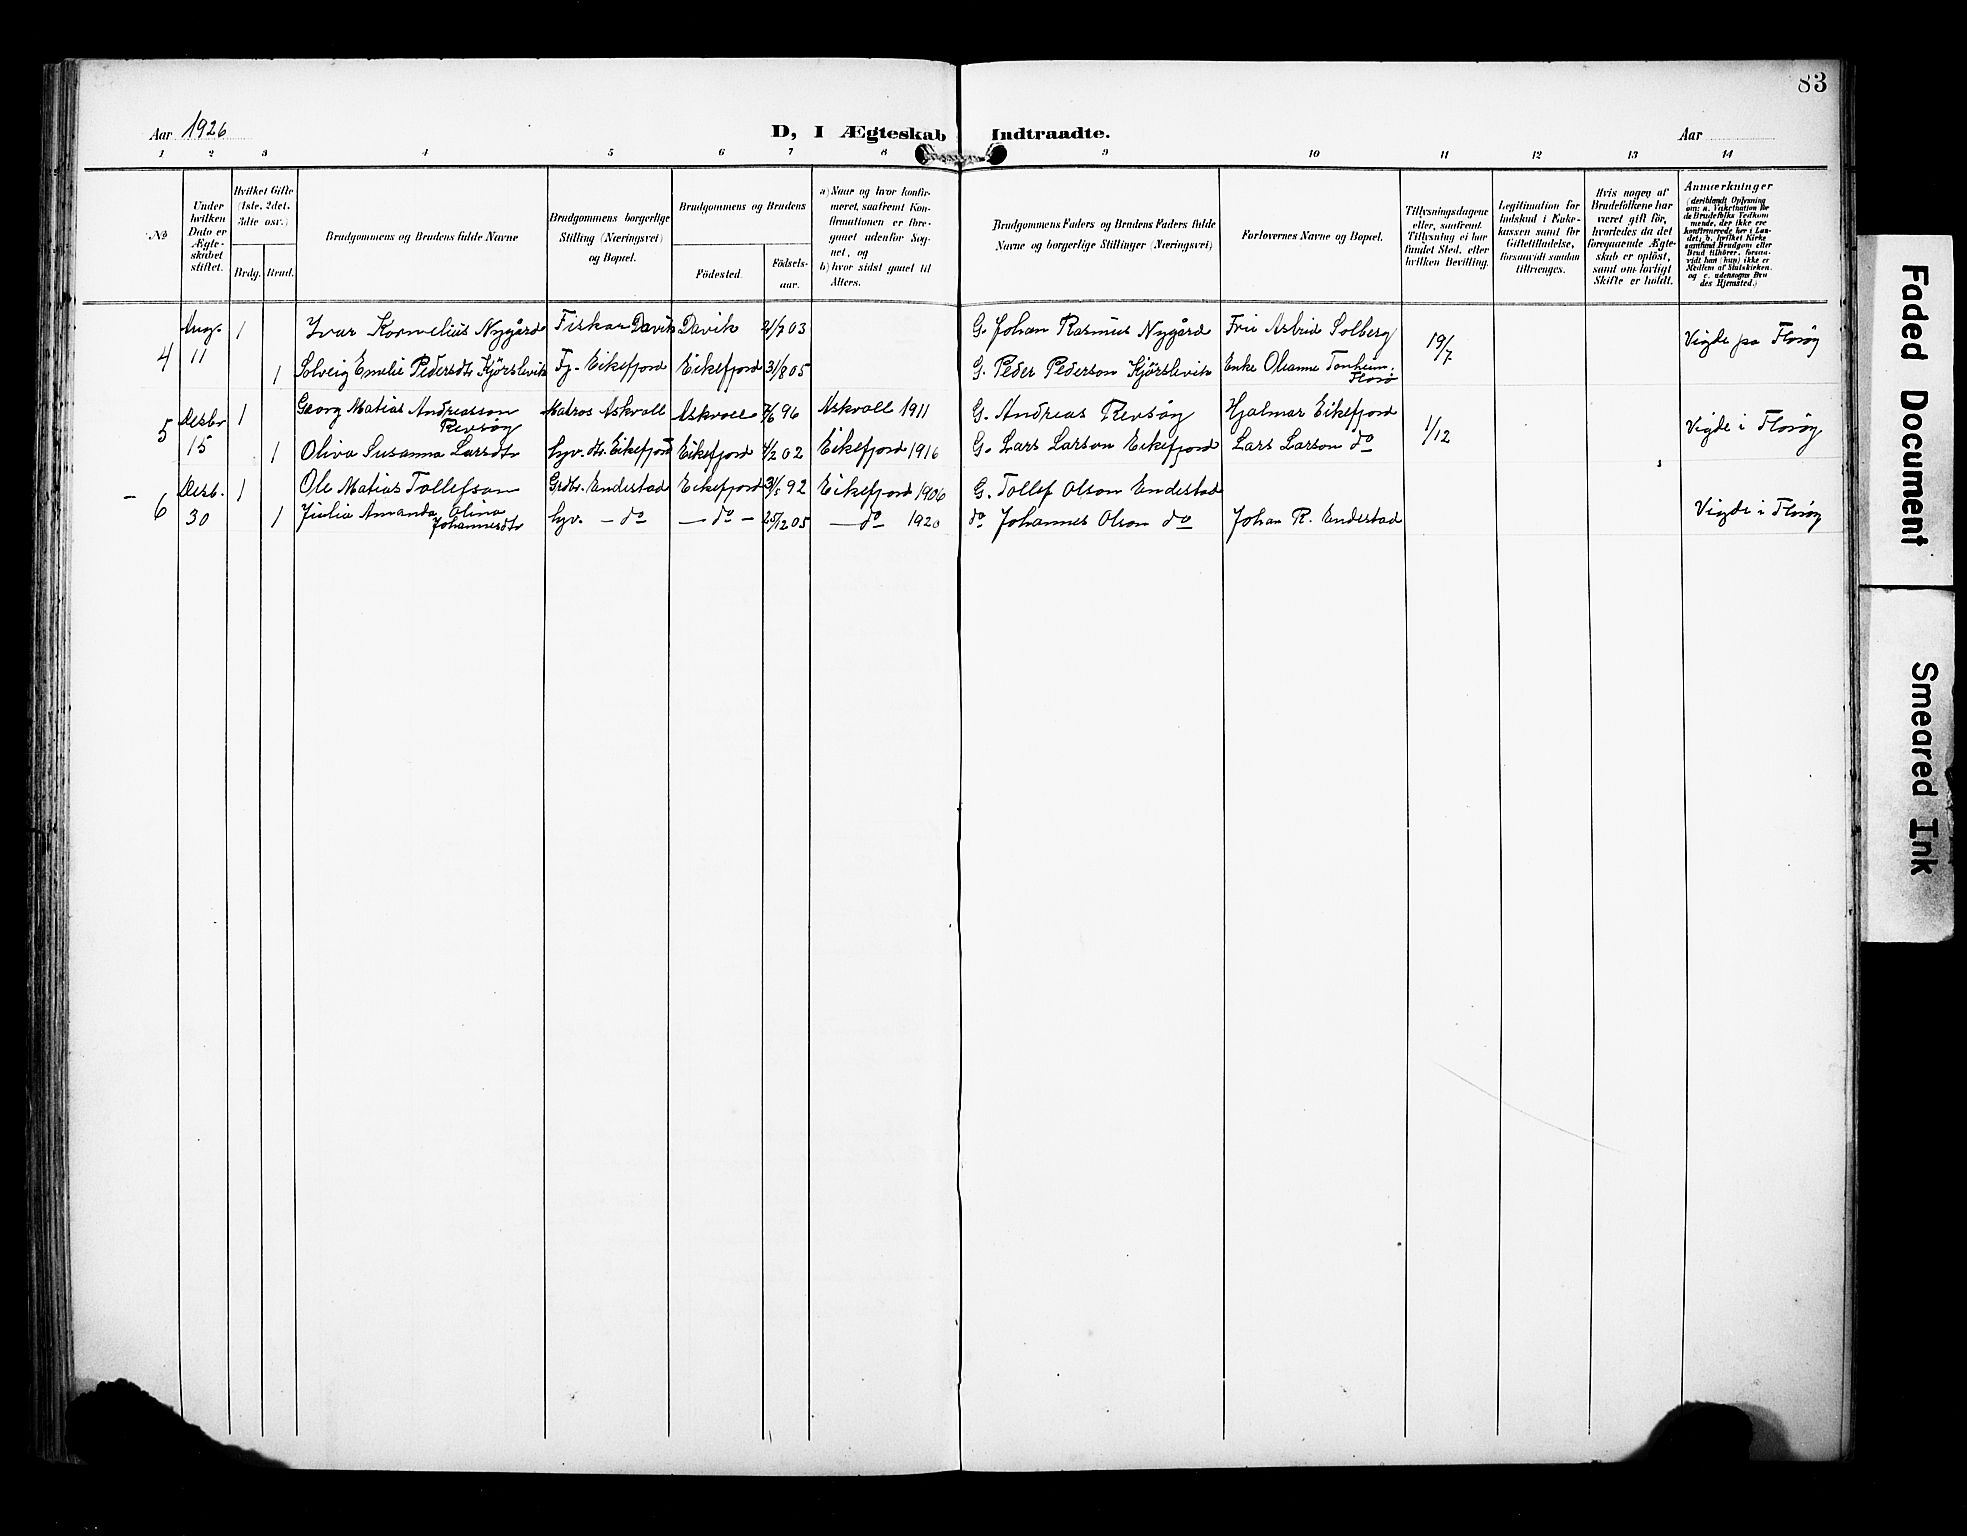 83
Aar 1926
D, I Ægteskab Indtraadte.
Aar
1 2 3 4 5 6 7 8 9 10 11 12 13 14
No
Under
hvilken
Dato er
Ægte-
skabet
stiftet.
Hvilket Gifte
(1ste, 2det,
3dte osv.)
Brdg. Brud.
Brudgommens og Brudens fulde Navne
Brudgommens borgerlige
Stilling (Næringsvei)
og Bopæl.
Brudgommens og Brudens
Födested.
Födsels-
aar.
a) Naar og hvor konfir-
meret, saafremt Kon-
firmationen er fore-
gaaet udenför Sog-
net, og
b) hvor sidst gaaet til
Alters.
Brudgommens Faders og Brudens Faders fulde
Navne og borgerlige Stillinger (Næringsvei)
Forlovernes Navne og Bopæl.
Tillysningsdagene
eller, saafremt
Tillysning ei har
fundet Sted, eller
hvilken Bevilling.
Legitimation for
Indskud i Enke-
kassen samt för
Giftetilladelse,
forsaavidt saadan
tiltrænges.
Hvis nogen af
Brudefolkene har
været gift för,
hvorledes da det
foregaaende Ægte-
skab er oplöst,
samt om lovligt
Skifte er holdt.
Anmærkninger
(deriblandt Oplysning
om: a. Vakcination for
de Brudefolks Vedkom
mende, der ikke ere
konfirmerede her i Lan-
det; b. hvilket Kirke
samfund Brudgom eller
Brud tilhörer, forsaa-
vidt han (hun) ikke er
Medlem af Statskirken,
og c. udensogns Bru
des Hjemsted.)
4 Aug. 11 1 Ivar Kornelius Nygård Fiskar Davik Davik 21/7 03 G. Johan Rasmus Nygård Fru Astrid Solberg 19/7 Vigde pa Florøy
1 Solveig Emelie Pedersdtr Kjørslevik Tj. Eikefjord Eikefjord 31/8 05 G. Peder Pederson Kjørslevik Enke Oleanne Tonheim, Florø
5 Desbr 15 1 Georg Matias Andreasson Revsøy Matros Askvoll Askvoll 7/6 96 Askvoll 1911 G. Andreas Revsøy Hjalmar Eikefjord 1/12 Vigde i Florøy
1 Oliva Susanna Larsdtr hyv. dtr. Eikefjord Eikefjord 4/2 02 Eikefjord 1916 G. Lars Larson Eikefjord Lars Larson do
- 6 Desb. 30 1 Ole Matias Tollefson Grdbr. Endestad Eikefjord 3/5 92 Eikefjord 1906 G. Tollef Olson Endestad
1 Julia Amanda Olina Johannesdtr hyv. - do - do - 25/2 05 - do 1920 do Johannes Olson do Johan R. Endestad Vigde i Florøy
Faded Document
Smeared Ink